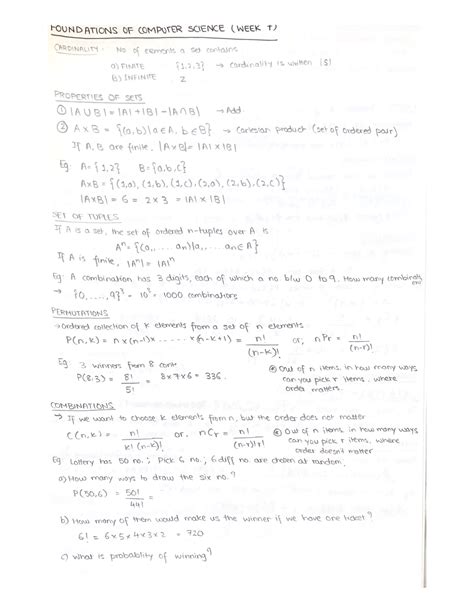 FOUNDATIONS OF COMPUTER SCIENCE (WEEK 7)
CARDINALITY: No of elements a set contains
a) FINITE {1,2,3} → Cardinality is written |S|
B) INFINITE Z
PROPERTIES OF SETS
① |A∪B| = |A| + |B| - |A∩B| → Add
② A×B = {(a,b) | a∈A, b∈B} → Cartesian product (set of ordered pair)
If A, B are finite, |A×B| = |A| × |B|
Eg A = {1,2} B = {a,b,c}
A×B = {(1,a), (1,b), (1,c), (2,a), (2,b), (2,c)}
|A×B| = 6 = 2 × 3 = |A| × |B|
SET OF TUPLES
If A is a set, the set of ordered n-tuples over A is
Aⁿ = {(a, . . . . an) | a, . . . an ∈ A}
If A is finite, |Aⁿ| = |A|ⁿ
Eg: A combination has 3 digits, each of which a no. b/w 0 to 9. How many combinations
→ {0, . . . . , 9}³ = 10³ = 1000 combinations
PERMUTATIONS
→ Ordered collection of k elements from a set of n elements
P(n,k) = n×(n-1)× . . . . . ×(n-k+1) = n!/(n-k)! or, nPr = n!/(n-r)!
Eg: 3 winners from 8 cont
P(8,3) = 8!/5! = 8×7×6 = 336. ⊛ Out of n items, in how many ways
can you pick r items, where
order matters.
COMBINATIONS
→ If we want to choose k elements from n, but the order does not matter
C(n,k) = n!/k!(n-k)! or, nCr = n!/(n-r)!r! ⊛ Out of n items, in how many ways
can you pick r items, where
order doesn't matter
Eg: Lottery has 50 no.; Pick 6 no.; 6 diff no. are chosen at random.
a) How many ways to draw the six no.?
P(50,6) = 50!/44! =
b) How many of them would make us the winner if we have one ticket?
6! = 6×5×4×3×2 = 720
c) What is probability of winning?